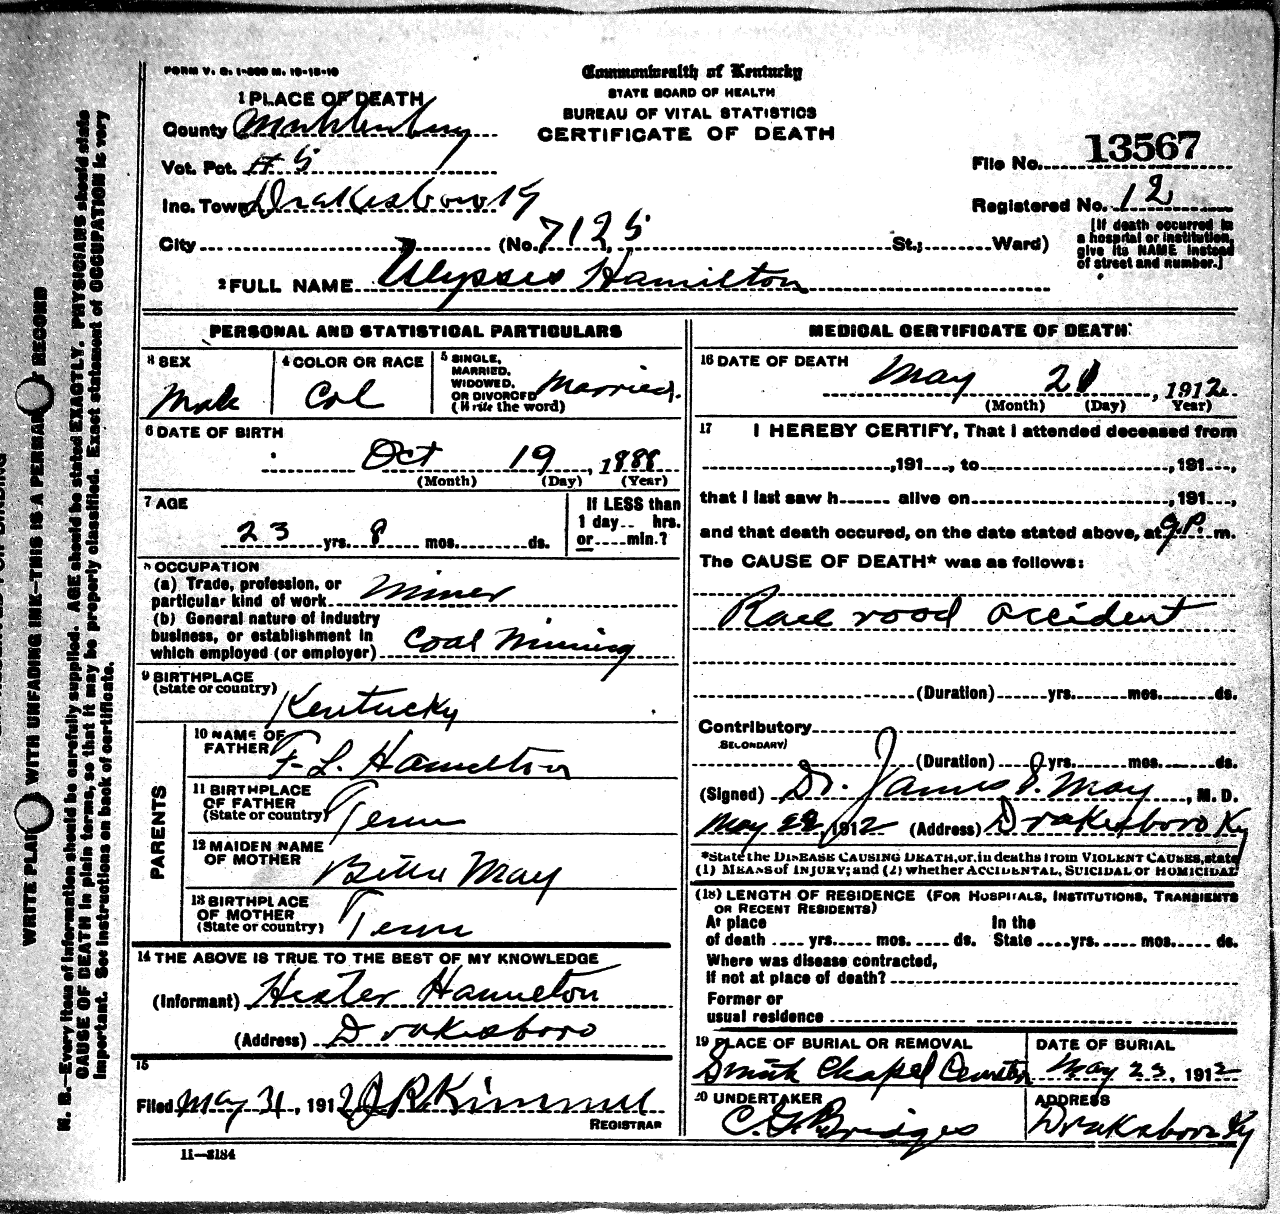 FORM V. S. 1-500 M. 10-15-10
Commonwealth of Kentucky
STATE BOARD OF HEALTH
BUREAU OF VITAL STATISTICS
CERTIFICATE OF DEATH
1 PLACE OF DEATH
County Muhlenburg
Vot. Pct. # 5
Inc. Town Drakesboro
City (No. 7125 St.; Ward)
File No. 13567
Registered No. 12
[If death occurred in
a hospital or institution,
give its NAME instead
of street and number.]
2 FULL NAME Ulysses Hamilton
PERSONAL AND STATISTICAL PARTICULARS
3 SEX
Male
4 COLOR OR RACE
Col
5 SINGLE,
MARRIED,
WIDOWED,
OR DIVORCED
(Write the word)
Married.
6 DATE OF BIRTH
Oct 19, 1888
(Month) (Day) (Year)
7 AGE
23 yrs. 8 mos. ds.
If LESS than
1 day.. hrs.
or....min.?
8 OCCUPATION
(a) Trade, profession, or
particular kind of work Miner
(b) General nature of industry
business, or establishment in
which employed (or employer) Coal Mining
9 BIRTHPLACE
(State or country)
Kentucky
PARENTS
10 NAME OF
FATHER
F. L. Hamelton
11 BIRTHPLACE
OF FATHER
(State or country)
Tenn
12 MAIDEN NAME
OF MOTHER
May
13 BIRTHPLACE
OF MOTHER
(State or country)
Tenn
14 THE ABOVE IS TRUE TO THE BEST OF MY KNOWLEDGE
(Informant) Hester Hamelton
(Address) Drakesboro
15
Filed May 31, 1912 J R Kimmel
REGISTRAR
11-3184
MEDICAL CERTIFICATE OF DEATH
16 DATE OF DEATH
May 21, 1912
(Month) (Day) (Year)
17 I HEREBY CERTIFY, That I attended deceased from
,191 , to ,191 ,
that I last saw h alive on ,191 ,
and that death occured, on the date stated above, at 9.P. m.
The CAUSE OF DEATH* was as follows:
Rael rood accident
(Duration) yrs. mos. ds.
Contributory
SECONDARY)
(Duration) yrs. mos. ds.
(Signed) Dr. James P. May, M. D.
May 22, 1912 (Address) Drakesboro Ky
*State the DISEASE CAUSING DEATH, or, in deaths from VIOLENT CAUSES, state
(1) MEANS of INJURY; and (2) whether ACCIDENTAL, SUICIDAL or HOMICIDAL
(18) LENGTH OF RESIDENCE (FOR HOSPITALS, INSTITUTIONS, TRANSIENTS
OR RECENT RESIDENTS)
At place In the
of death .... yrs. mos. ds. State .... yrs. mos. ds.
Where was disease contracted,
if not at place of death?
Former or
usual residence
19 PLACE OF BURIAL OR REMOVAL
Smith Chapel
DATE OF BURIAL
May 23, 1912
20 UNDERTAKER
C. G. Bridges
ADDRESS
Drakesboro Ky
N. B.—Every item of information should be carefully supplied. AGE should be stated EXACTLY. PHYSICIANS should state
CAUSE OF DEATH in plain terms, so that it may be properly classified. Exact statement of OCCUPATION is very
important. See instructions on back of certificate.